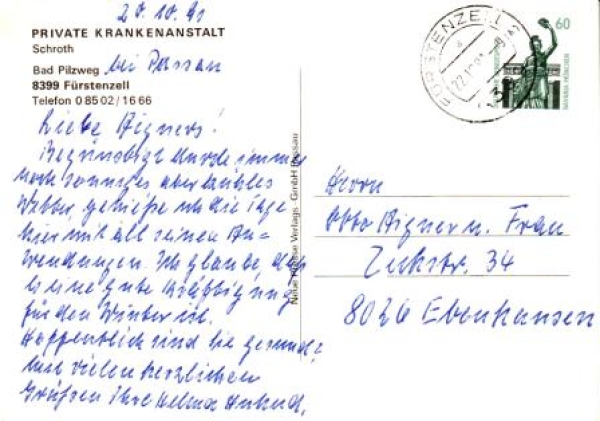 20.10.91
PRIVATE KRANKENANSTALT
Schroth
Bad Pilzweg bei Passau
8399 Fürstenzell
Telefon 0 85 02 / 16 66
Liebe Aigners!
Begünstigt durch immer
noch sonniges aber kühles
Wetter, genieße ich die Tage
hier mit all seinen An-
wendungen. Ich glaube, daß
es eine gute Kräftigung
für den Winter ist.
Hoffentlich sind Sie gesund?
Mit vielen herzlichen
Grüßen Ihre Helma
Neue Presse Verlags-GmbH Passau
FÜRSTENZELL
8399
60
BAVARIA MÜNCHEN
Herrn
Otto Aigner u. Frau
34
8026 Ebenhausen